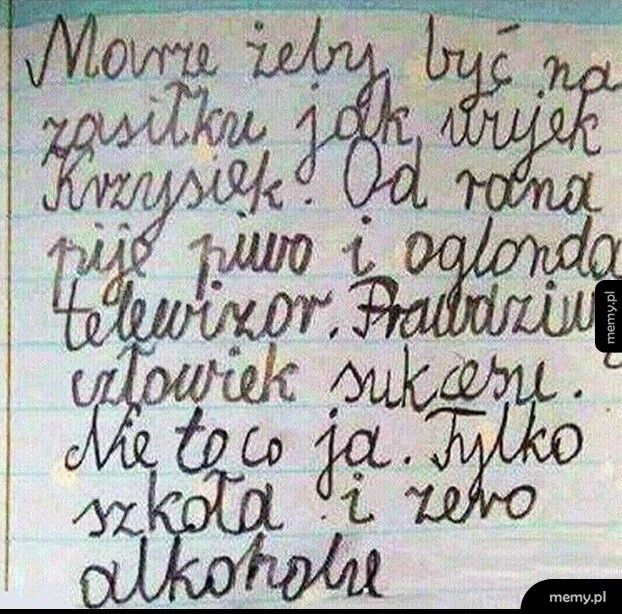 Marze żeby być na
zasiłku jak wujek
Krzysiek. Od rana
pije piwo i oglonda
telewizor. Prawdziwy
człowiek sukcesu.
Nie to co ja. Tylko
szkoła i zero
alkoholu
memy.pl
memy.pl